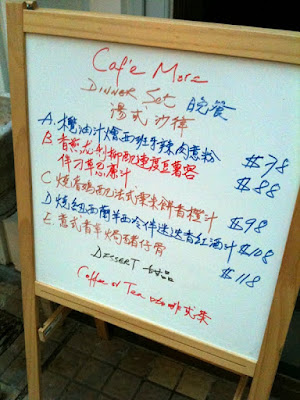 Caf'e More
DINNER Set 晚餐
湯或沙律
A. 欖油汁燴西班牙辣肉意粉 $78
B. 香煎龙利柳配速度豆薯容
伴刁草忌廉汁 $88
C. 燒春鸡配法式薄米餅香橙汁 $98
D. 燒紐西蘭羊西冷伴迷迭香紅酒汁 $108
E. 意式香草焗豬仔骨 $118
DESSERT 甜品
Coffee or Tea 咖啡或茶